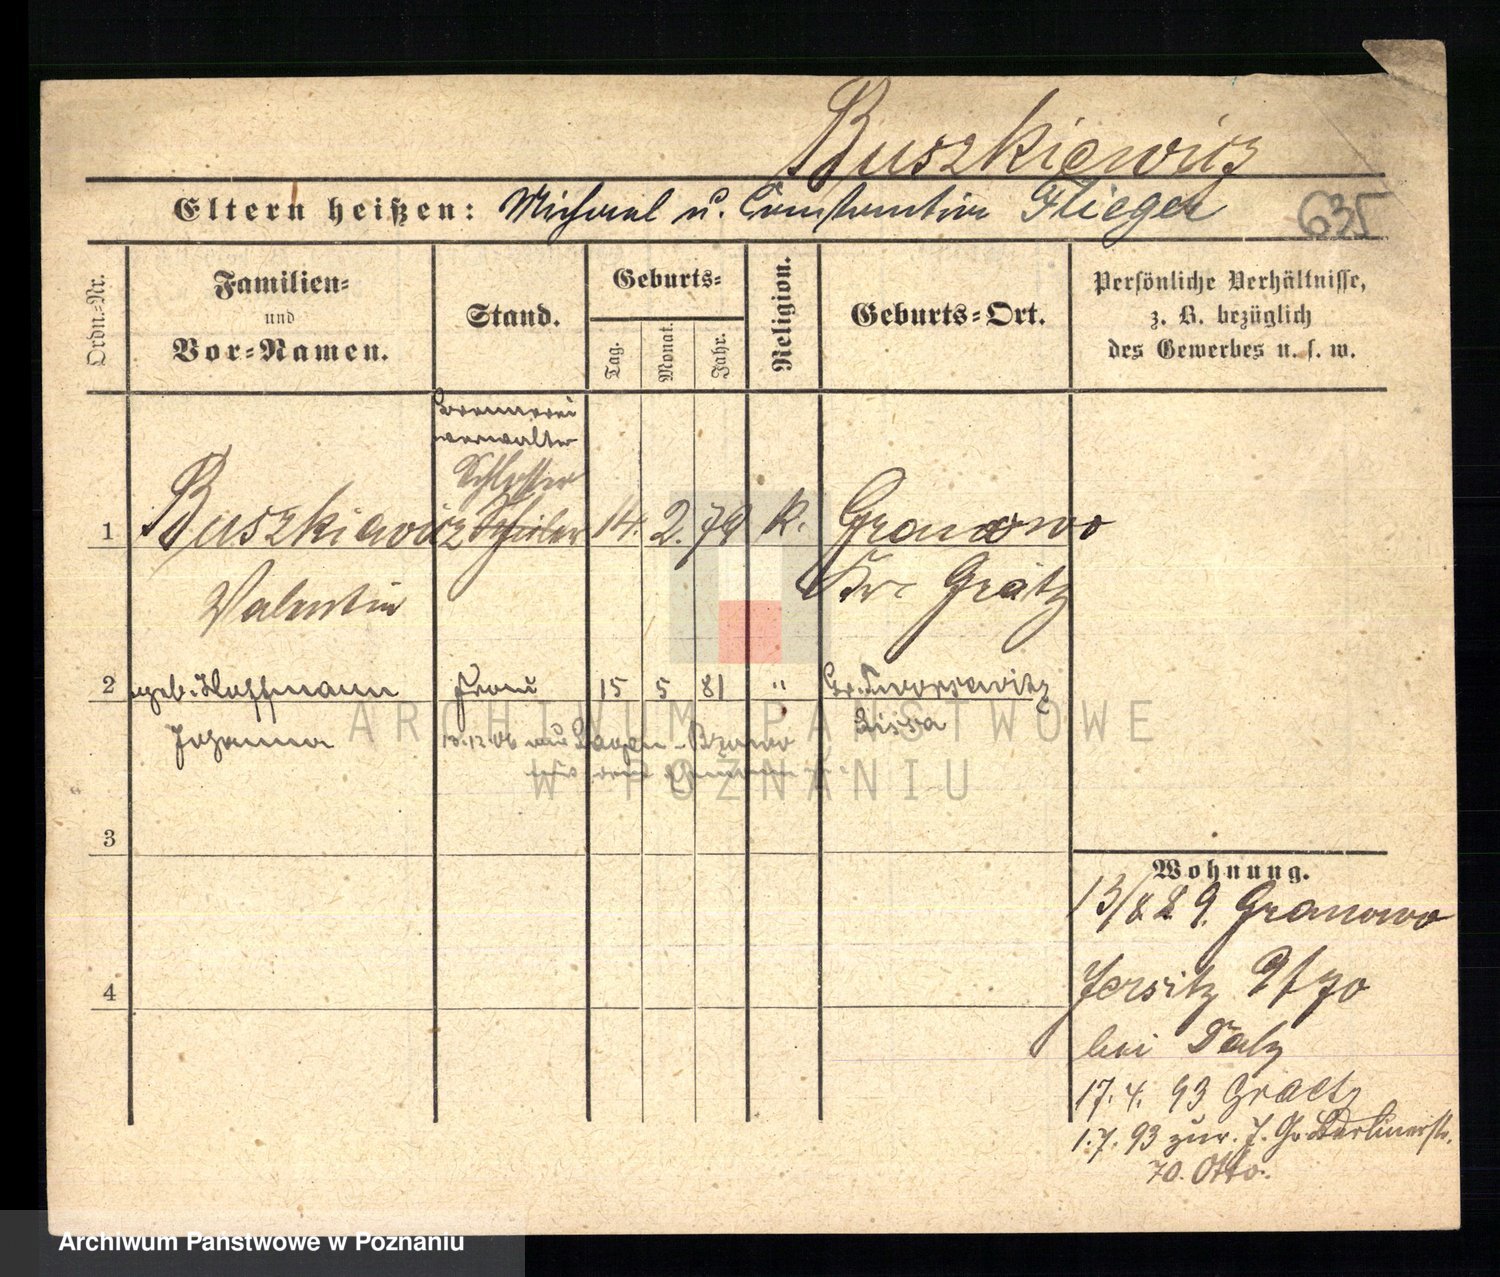 Buszkiewicz
Eltern heißen: Michael u. Constantia Flieger
635
Ordn.-Nr.
Familien-
und
Vor-Namen.
Stand.
Geburts-
Tag.
Monat.
Jahr.
Religion.
Geburts-Ort.
Persönliche Verhältnisse,
z. B. bezüglich
des Gewerbes u. s. w.
verwalter
Schlosser
1 Buszkiewicz Schüler 14. 2. 79 K. Granowo
Valentin Kr. Grätz
2 geb. Hoffmann Frau 15 5 81 " Gr. Tworsewitz
Johanna 13.12.06 Lissa
3
4
Wohnung.
13/8 89. Granowo
Jersitz 91 70
bei
17. 4. 93 Graetz
1. 7. 93 zur. J. Gr. Berlinerstr.
70. Otto.
ARCHIWUM PAŃSTWOWE
W POZNANIU
Archiwum Państwowe w Poznaniu